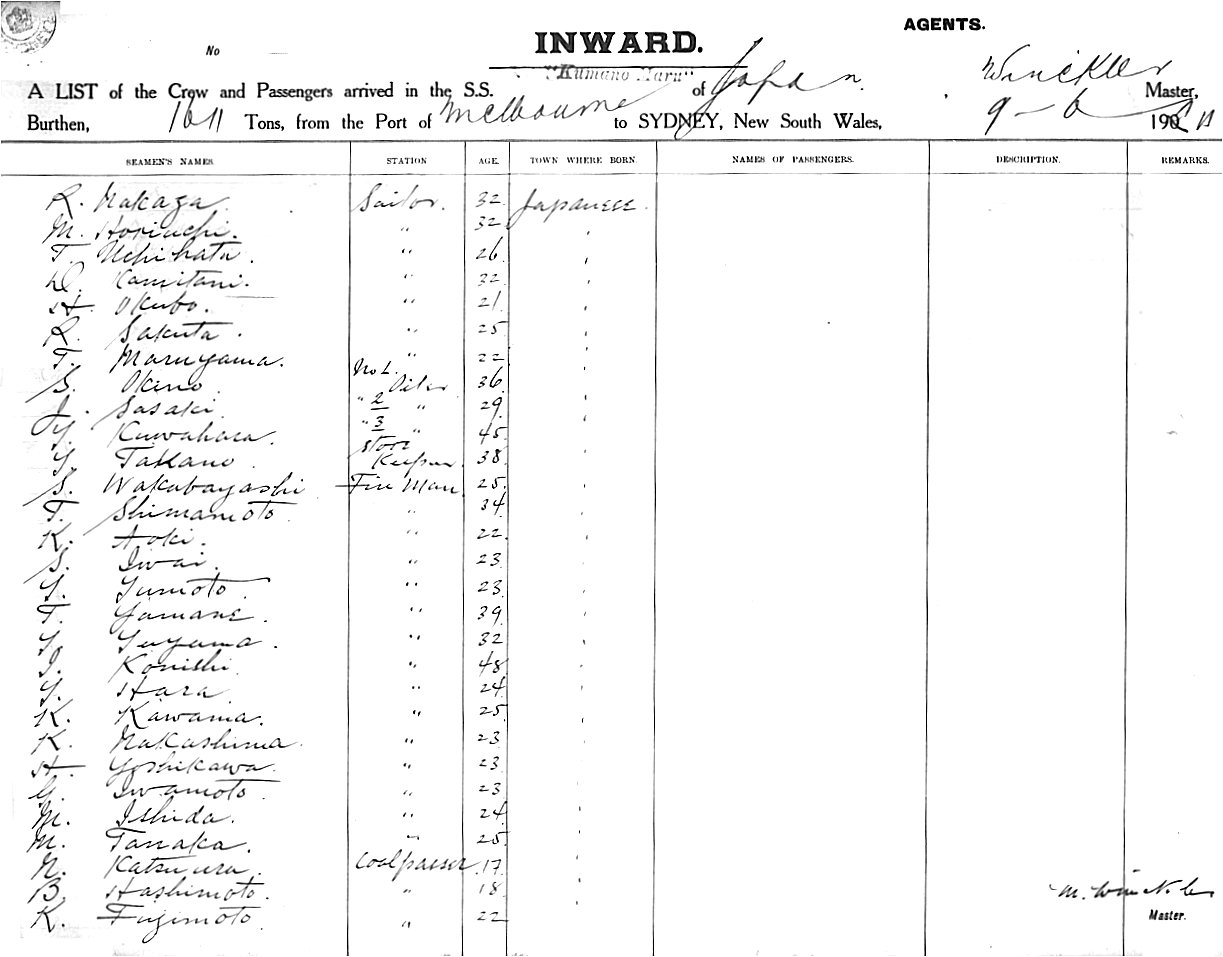 AGENTS.
No
INWARD.
"Kumano Maru" Japan. Winckler
A LIST of the Crew and Passengers arrived in the S.S. of Master,
Burthen, 1611 Tons, from the Port of Melbourne to SYDNEY, New South Wales, 9-6 190
SEAMEN'S NAMES STATION AGE. TOWN WHERE BORN. NAMES OF PASSENGERS. DESCRIPTION. REMARKS.
R. Nakaga. Sailor. 32 Japanese.
M. Horiuchi. " 32 "
T. Uchihata. " 26 "
Kamitani. " 32 "
H. Okubo. " 21 "
R. Sakuta. " 25 "
T. Maruyama. " 22 "
S. Okino No 1. Oiler 36 "
Sasaki " 2 " 29 "
Y. Kuwahara. " 3 " 45 "
Y. Takano. Store Keeper. 38 "
S. Wakabayashi Fire Man 25 "
T. Shimamoto " 34 "
K. Aoki. " 22 "
S. Iwai. " 23 "
Y. Yumoto " 23 "
T. Yamane. " 39 "
Y. Yuyama. " 32 "
I. Konishi " 48 "
Y. Hara " 24 "
K. Kawama. " 25 "
K. Nakashima. " 23 "
H. Yoshikawa. " 23 "
G. Iwamoto. " 23 "
M. Ishida. " 24 "
M. Tanaka. " 25 "
N. Katsuura. Coal passer 17 "
B. Hashimoto. " 18 "
K. Fujimoto " 22
M. Winckler
Master.